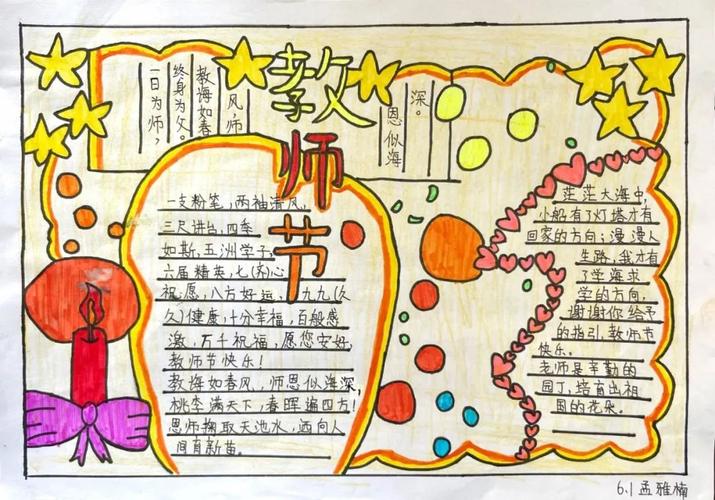 教师节
一日为师，
终身为父。
教海如春
风，师
恩似海
深。
一支粉笔，两袖清风，
三尺讲台，四季
如斯，五洲学子，
六届精英，七(齐)心
祝愿，八方好运，九九(久
久)健康，十分幸福，百般感
激，万千祝福，愿您安好，
教师节快乐！
教海如春风，师恩似海深，
桃李满天下，春晖遍四方！
恩师掬取天池水，洒向人
间育新苗。
茫茫大海中，
小船有了灯塔才有
回家的方向；漫漫人
生路，我才有
了学海求
学的方向，
谢谢你给予
的指引，教师节
快乐。
老师是辛勤的
园丁，培育出祖
国的花朵。
6.1 孟雅楠